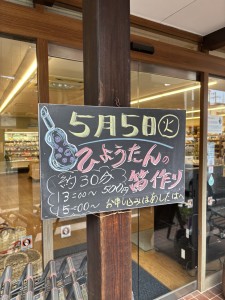 5月5日(火)
ひょうたんの
笛作り
約30分
500円
13:00〜
15:00〜
お申し込みはあしたばへ